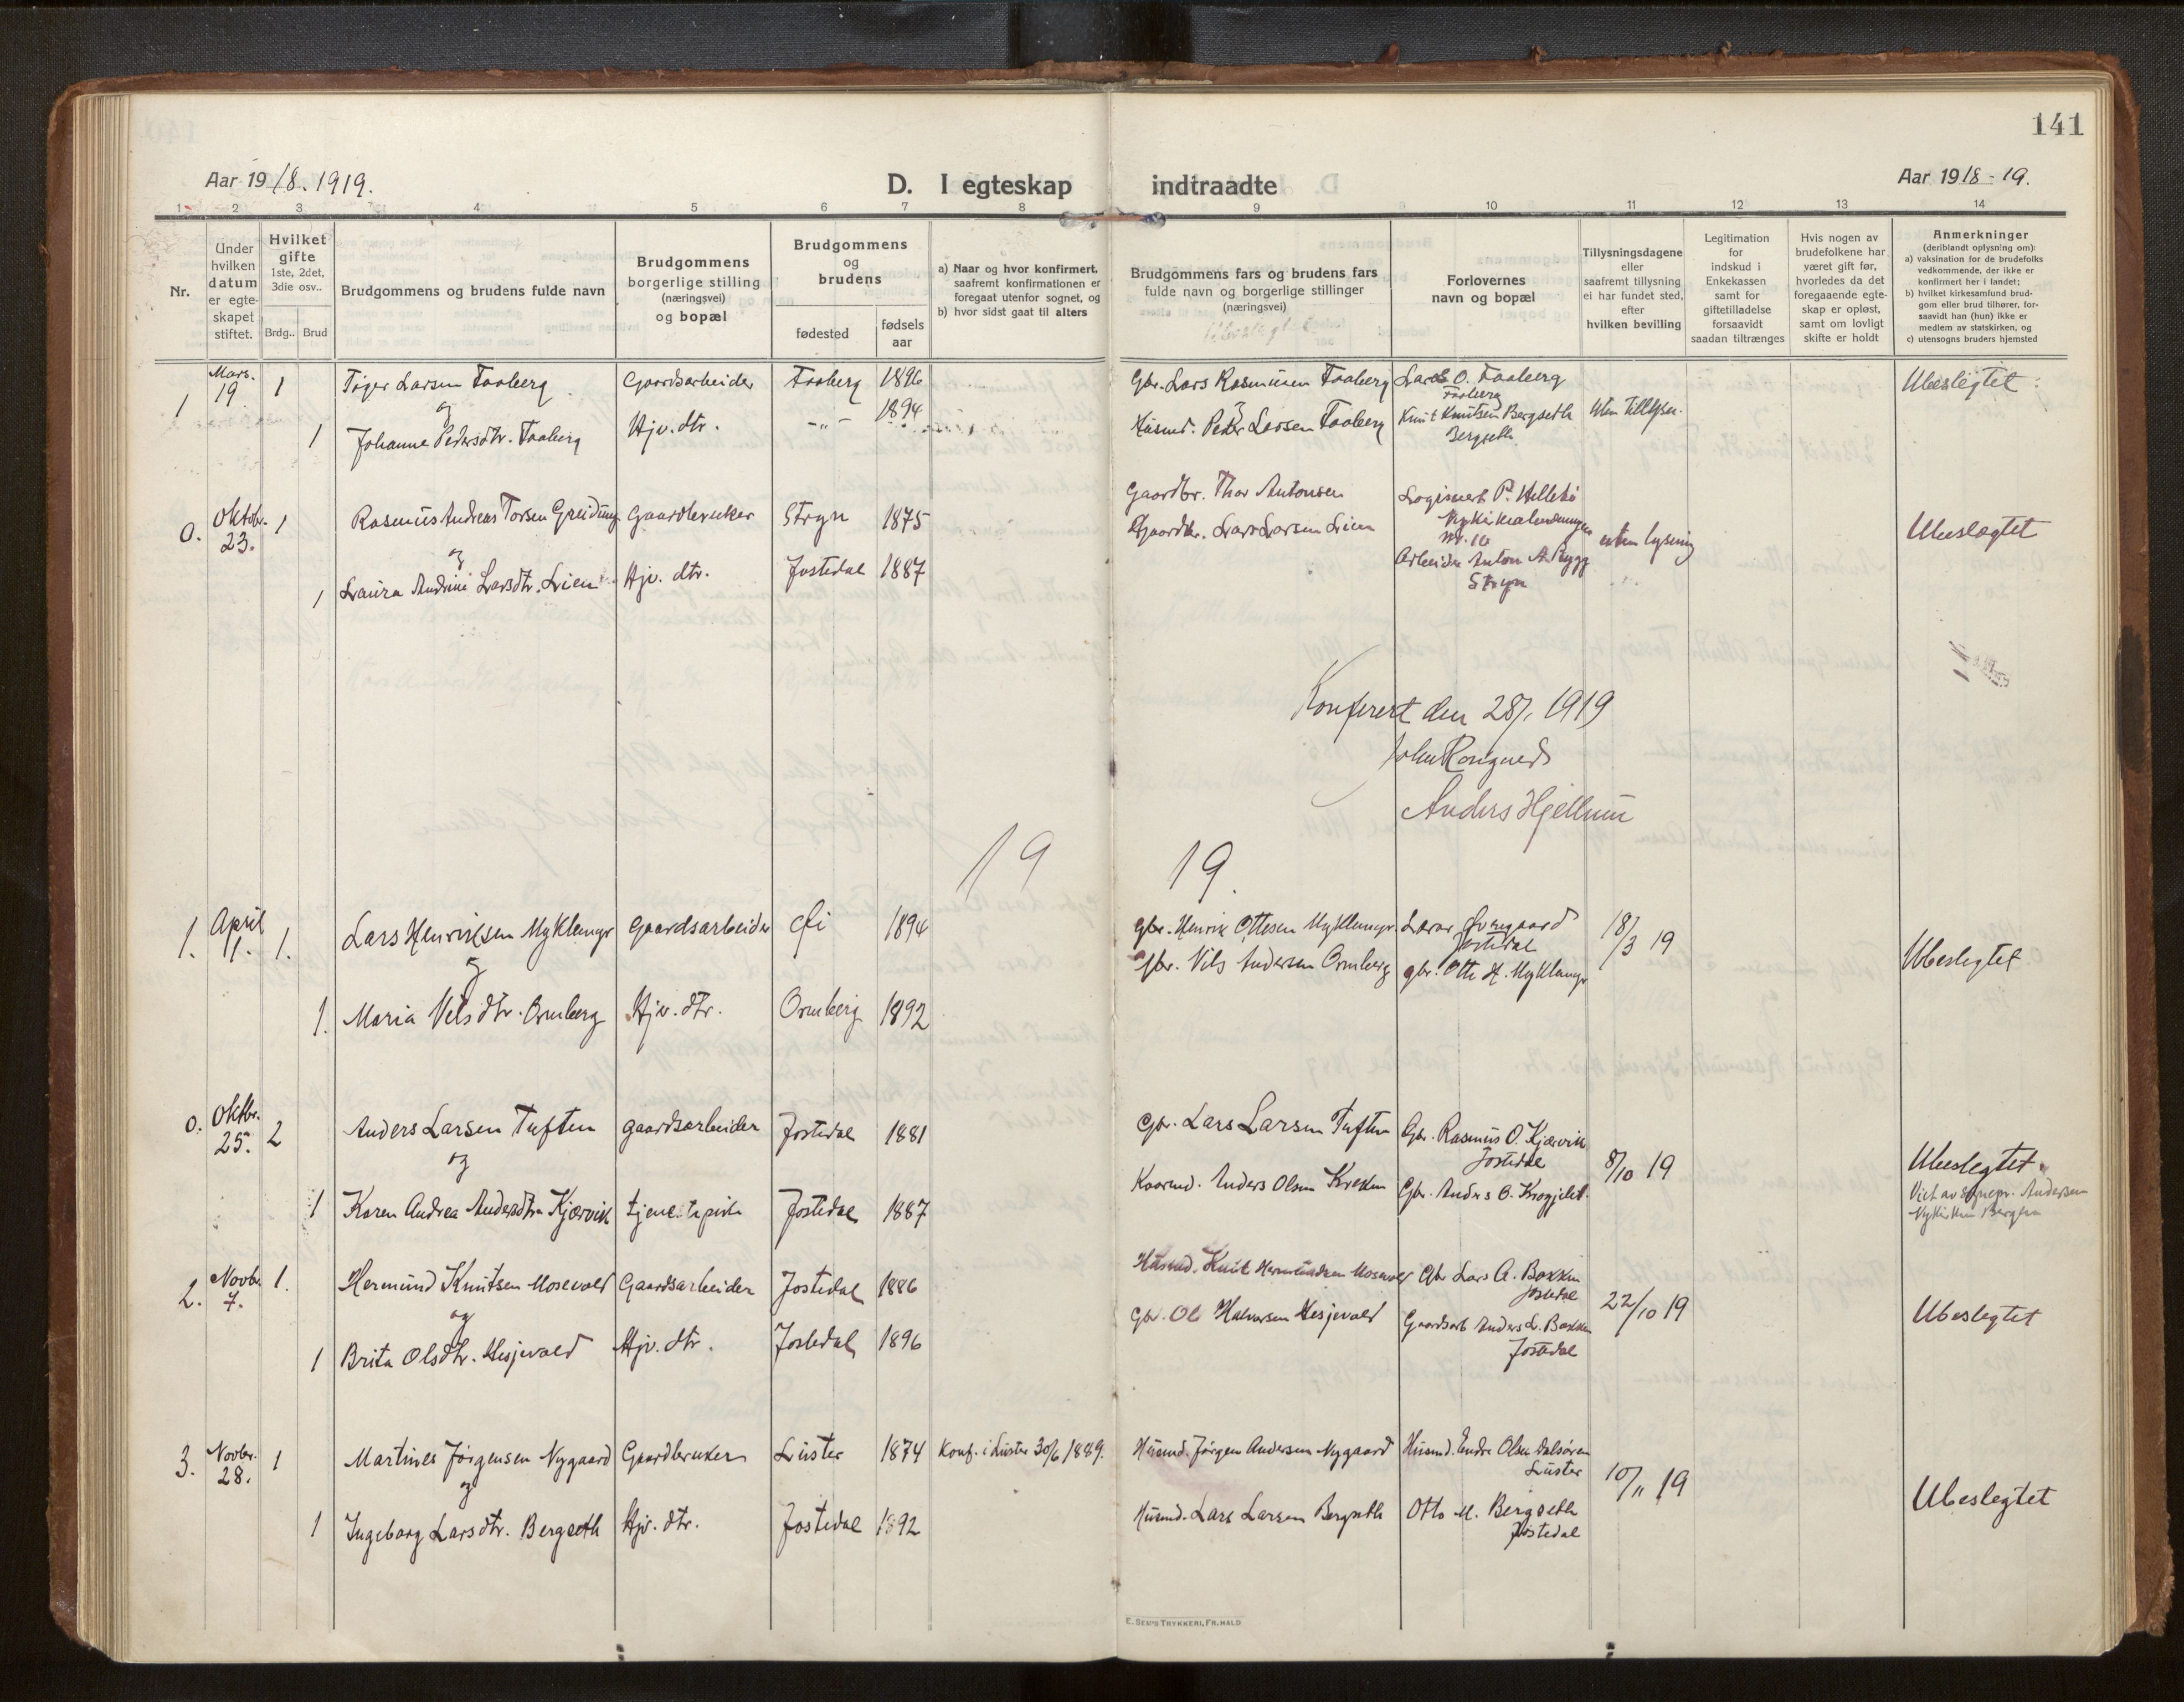 141
Aar 1918. 1919.
D. I egteskap
indtraadte
Aar 1918-19.
1 2 3 4 5 6 7 8 9 10 11 12 13 14
Nr.
Under
hvilken
datum
er egte-
skapet
stiftet.
Hvilket
gifte
1ste, 2det,
3die osv..
Brdg.. Brud
Brudgommens og brudens fulde navn
Brudgommens
borgerlige stilling
(næringsvei)
og bopæl
Brudgommens
og
brudens
fødested
fødsels
aar
a) Naar og hvor konfirmert,
saafremt konfirmationen er
foregaat utenfor sognet, og
b) hvor sidst gaat til alters
Brudgommens fars og brudens fars
fulde navn og borgerlige stillinger
(næringsvei)
Forlovernes
navn og bopæl
Tillysningsdagene
eller
saafremt tillysning
ei har fundet sted,
efter
hvilken bevilling
Legitimation
for
indskud i
Enkekassen
samt for
giftetilladelse
forsaavidt
saadan tiltrænges
Hvis nogen av
brudefolkene har
været gift før,
hvorledes da det
foregaaende egte-
skap er opløst,
samt om lovligt
skifte er holdt
Anmerkninger
(deriblandt oplysning om):
a) vaksination for de brudefolks
vedkommende, der ikke er
konfirmert her i landet;
b) hvilket kirkesamfund brud-
gom eller brud tilhører, for-
saavidt han (hun) ikke er
medlem av statskirken, og
c) utensogns bruders hjemsted
1 Mars. 19 1 Tøger Larsen Faaberg Gaardsarbeider Faaberg 1896 Gbr. Lars Rasmusen Faaberg Lars O. Faaberg Ubeslegtet
og Faaberg
1 Johanne Pedersdtr. Faaberg Hjv. dtr. -"- 1894 Husmd. Peder Larsen Faaberg Knut Knutsen Bergseth uten tillysn.
Bergseth
0. Oktobr. 23. 1 Rasmus Andreas Torsen Greidung Gaardbruker Stryn 1875 Gaardbr. Thor Antonsen Logisvert P. Hellebø Ubeslegtet
og Nykirkealmenningen
nr. 10 uten lysning
1 Laura Andrine Larsdtr. Lien Hjv. dtr. Jostedal 1887 Gaardbr. Lars Larsen Lien Arbeider Anton A. Rygg
Stryn
Konferert den 28/1 1919
John Rongved
Anders Hjellum
19 19.
1. April 11. 1. Lars Henriksen Myklemyr Gaardsarbeider 1894 gbr. Henrik Ottesen Myklemyr Lærar Øvregaard 18/3 19 Ubeslegtet
og Jostedal
1. Maria Nilsdtr. Ormberg Hjv. dtr. Ormberg 1892 gbr. Nils Andersen Ormberg gbr. Otto H. Myklemyr
0. Oktbr. 25. 2 Anders Larsen Tuften gaardsarbeider Jostedal 1881 Gbr. Lars Larsen Tuften Gbr. Rasmus O. Kjærvik 8/10 19 Ubeslegtet.
og Jostedal
1 Karen Andrea Andersdtr. Kjærvik tjenestepike Jostedal 1887 Kaarmd. Anders Olsen Kreken Gbr. Anders O. Krogjelet. Viet av sognepr. Andersen
Nykirken Bergen
2. Novbr. 7. 1. Hermund Knutsen Mosevold Gaardsarbeider Jostedal 1886 Husmd. Knut Hermundsen Mosevold Gbr Lars A. Bakken 22/10 19 Ubeslegtet
og Jostedal
1 Brita Olsdtr. Hesjevold Hjv. dtr. Jostedal 1896 Gbr. Ole Halvorsen Hesjevold Gaardsarb Anders L. Bakken
Jostedal
3. Novbr. 28. 1 Martines Jørgensen Nygaard Gaardbruker Luster 1874 Konf. i Luster 30/6 1889. Husmd. Jørgen Andersen Nygaard Husmd. Endre Olsen Dalsøren 10/11 19 Ubeslegtet
og Luster
1 Ingeborg Larsdtr. Bergseth Hjv. dtr. Jostedal 1892 Husmd. Lars Larsen Bergseth Otto M. Bergseth
Jostedal
E. SEM'S TRYKKERI, FR.HALD